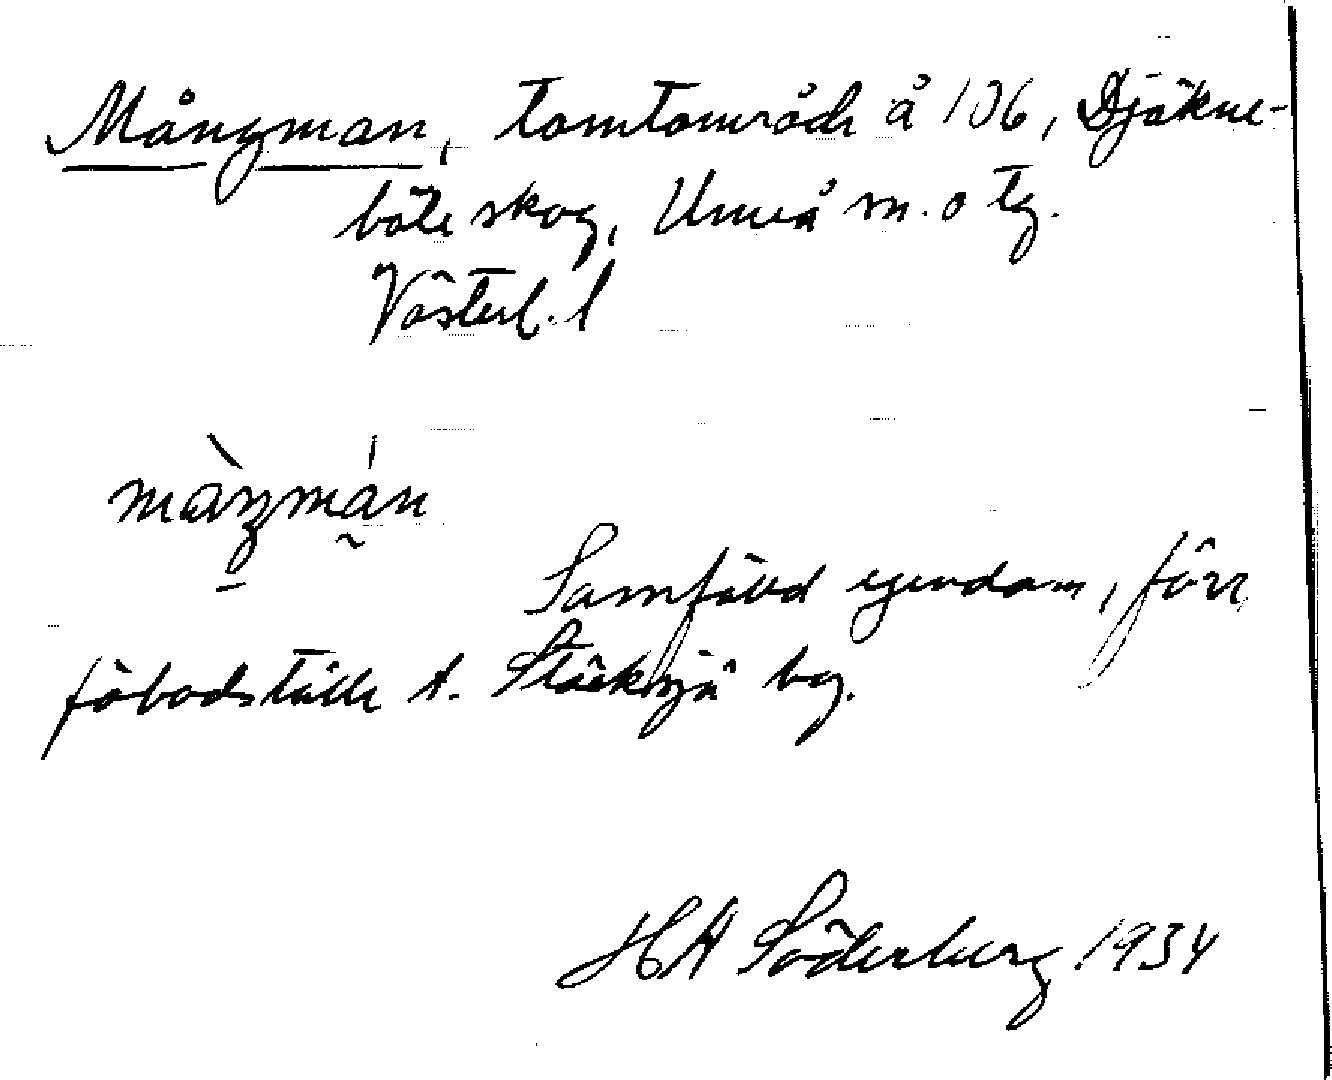 Mångman, tomtområde å 106, Djäkne-
böle skog, Umeå m. o tg.
Västerb. l
màŋmán
Samfälld egendom, förr
fäbodställe t. Stöcksjö by.
HA Söderberg 1934